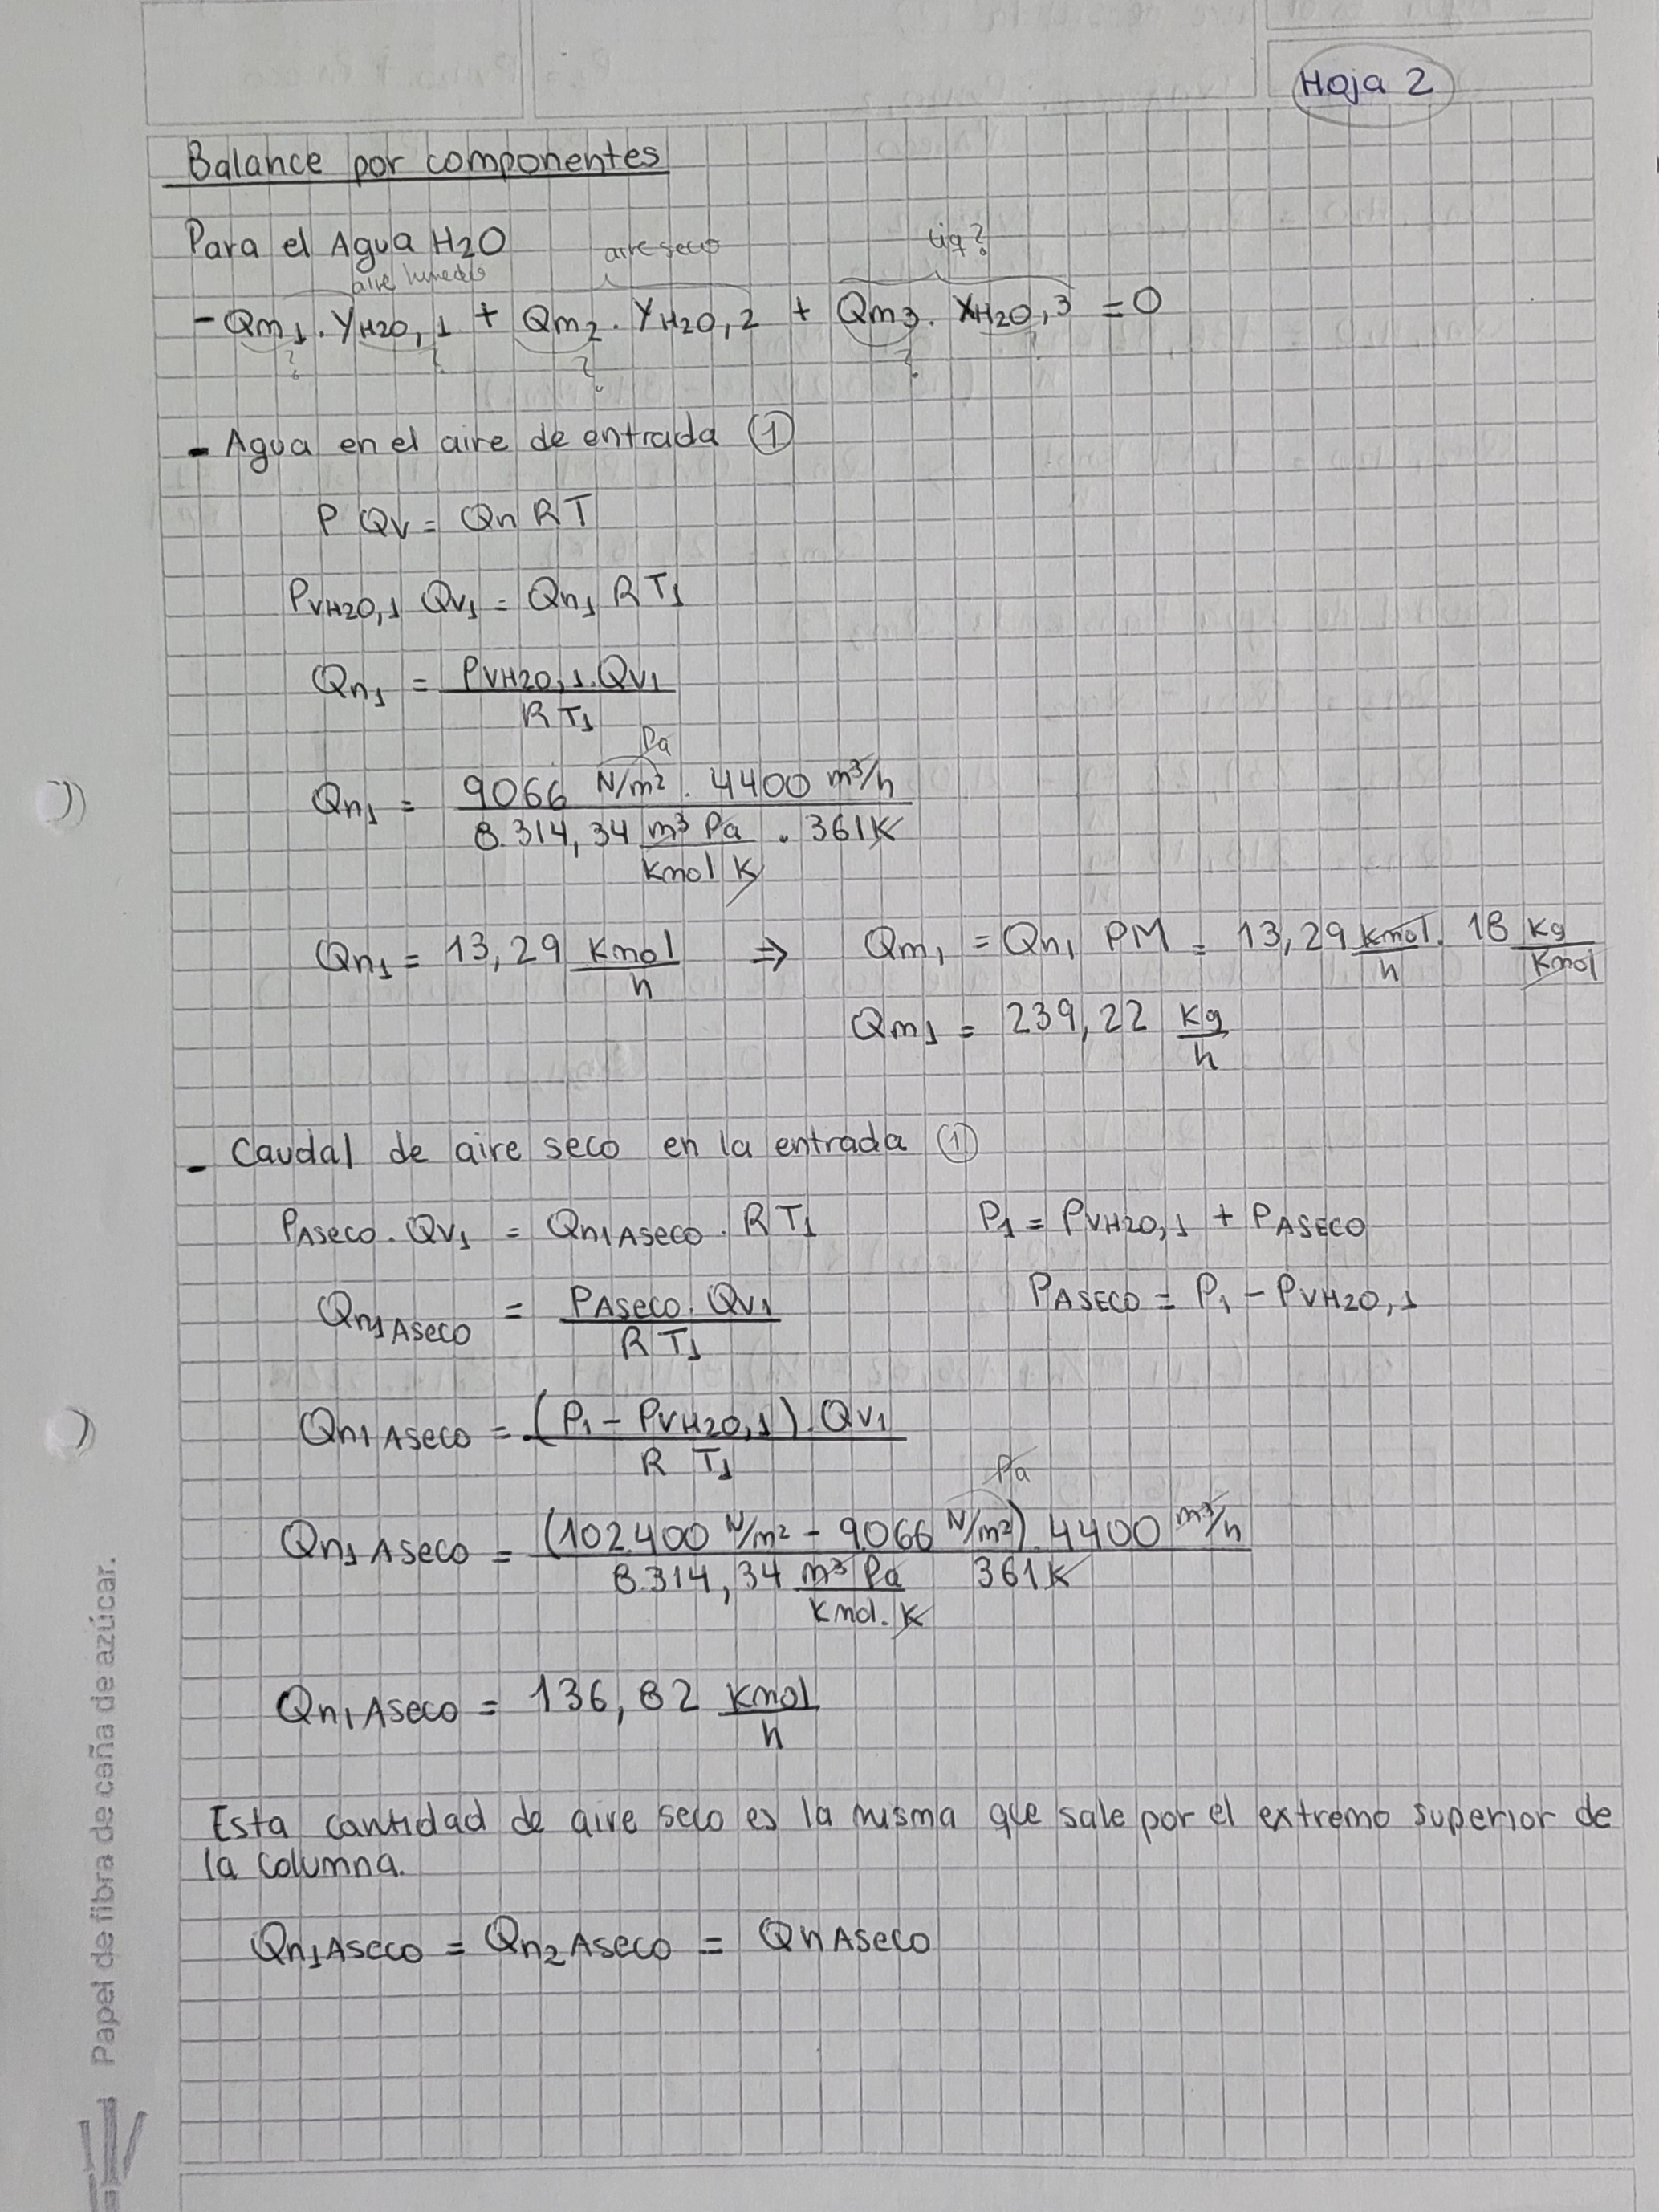 Hoja 2
Balance por componentes
Para el Agua H2O
aire humedo aire seco Liq?
- Qm1 . YH2O,1 + Qm2 . YH2O,2 + Qm3 . XH2O,3 = 0
? ? ? ? ?
- Agua en el aire de entrada ①
P QV = Qn R T
PVH2O,1 QV1 = Qn1 R T1
Qn1 = PVH2O,1 . QV1 / R T1
Pa
Qn1 = 9066 N/m² . 4400 m³/h / 8.314,34 m³ Pa / Kmol K . 361 K
Qn1 = 13,29 Kmol/h ⇒ Qm1 = Qn1 PM = 13,29 Kmol/h . 18 Kg/Kmol
Qm1 = 239,22 Kg/h
- Caudal de aire seco en la entrada ①
PASECO . QV1 = Qn1ASECO . R T1 P1 = PVH2O,1 + PASECO
Qn1ASECO = PASECO . QV1 / R T1 PASECO = P1 - PVH2O,1
Qn1ASECO = (P1 - PVH2O,1) . QV1 / R T1
Pa
Qn1ASECO = (102.400 N/m² - 9.066 N/m²) . 4400 m³/h / 8.314,34 m³ Pa / Kmol . K 361 K
Qn1ASECO = 136,82 Kmol/h
Esta cantidad de aire seco es la misma que sale por el extremo superior de
la columna.
Qn1ASECO = Qn2ASECO = QnASECO
Papel de fibra de caña de azúcar.